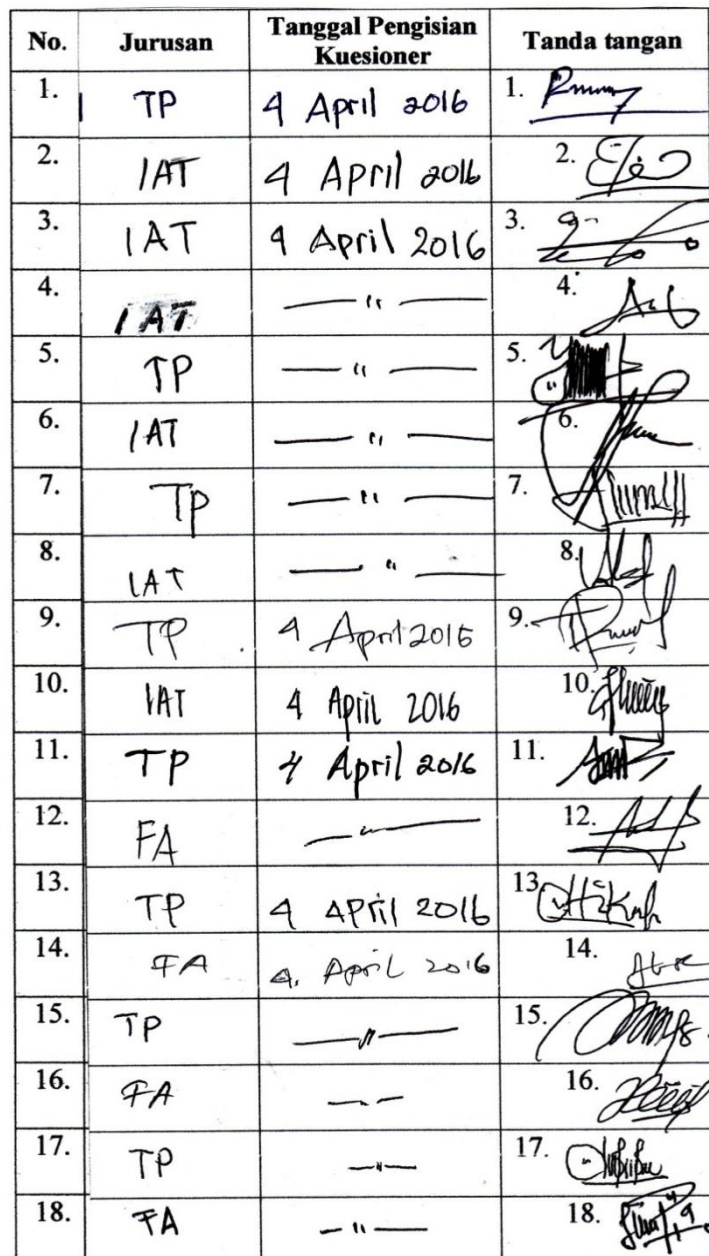 No. Jurusan Tanggal Pengisian Kuesioner Tanda tangan
1. TP 4 April 2016 1.
2. IAT 4 April 2016 2.
3. IAT 4 April 2016 3.
4. IAT — " — 4.
5. TP — " — 5.
6. IAT — " — 6.
7. TP — " — 7.
8. IAT — " — 8.
9. TP 4 April 2016 9.
10. IAT 4 April 2016 10.
11. TP 4 April 2016 11.
12. FA — " — 12.
13. TP 4 April 2016 13.
14. FA 4. April 2016 14.
15. TP — " — 15.
16. FA — " — 16.
17. TP — " — 17.
18. FA — " — 18.